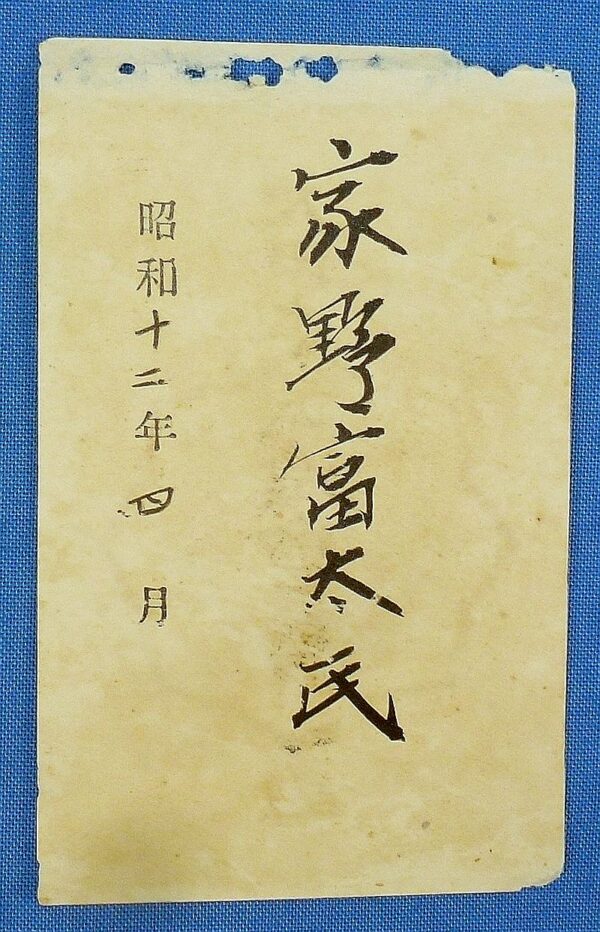 家野富太氏
昭和十二年四月